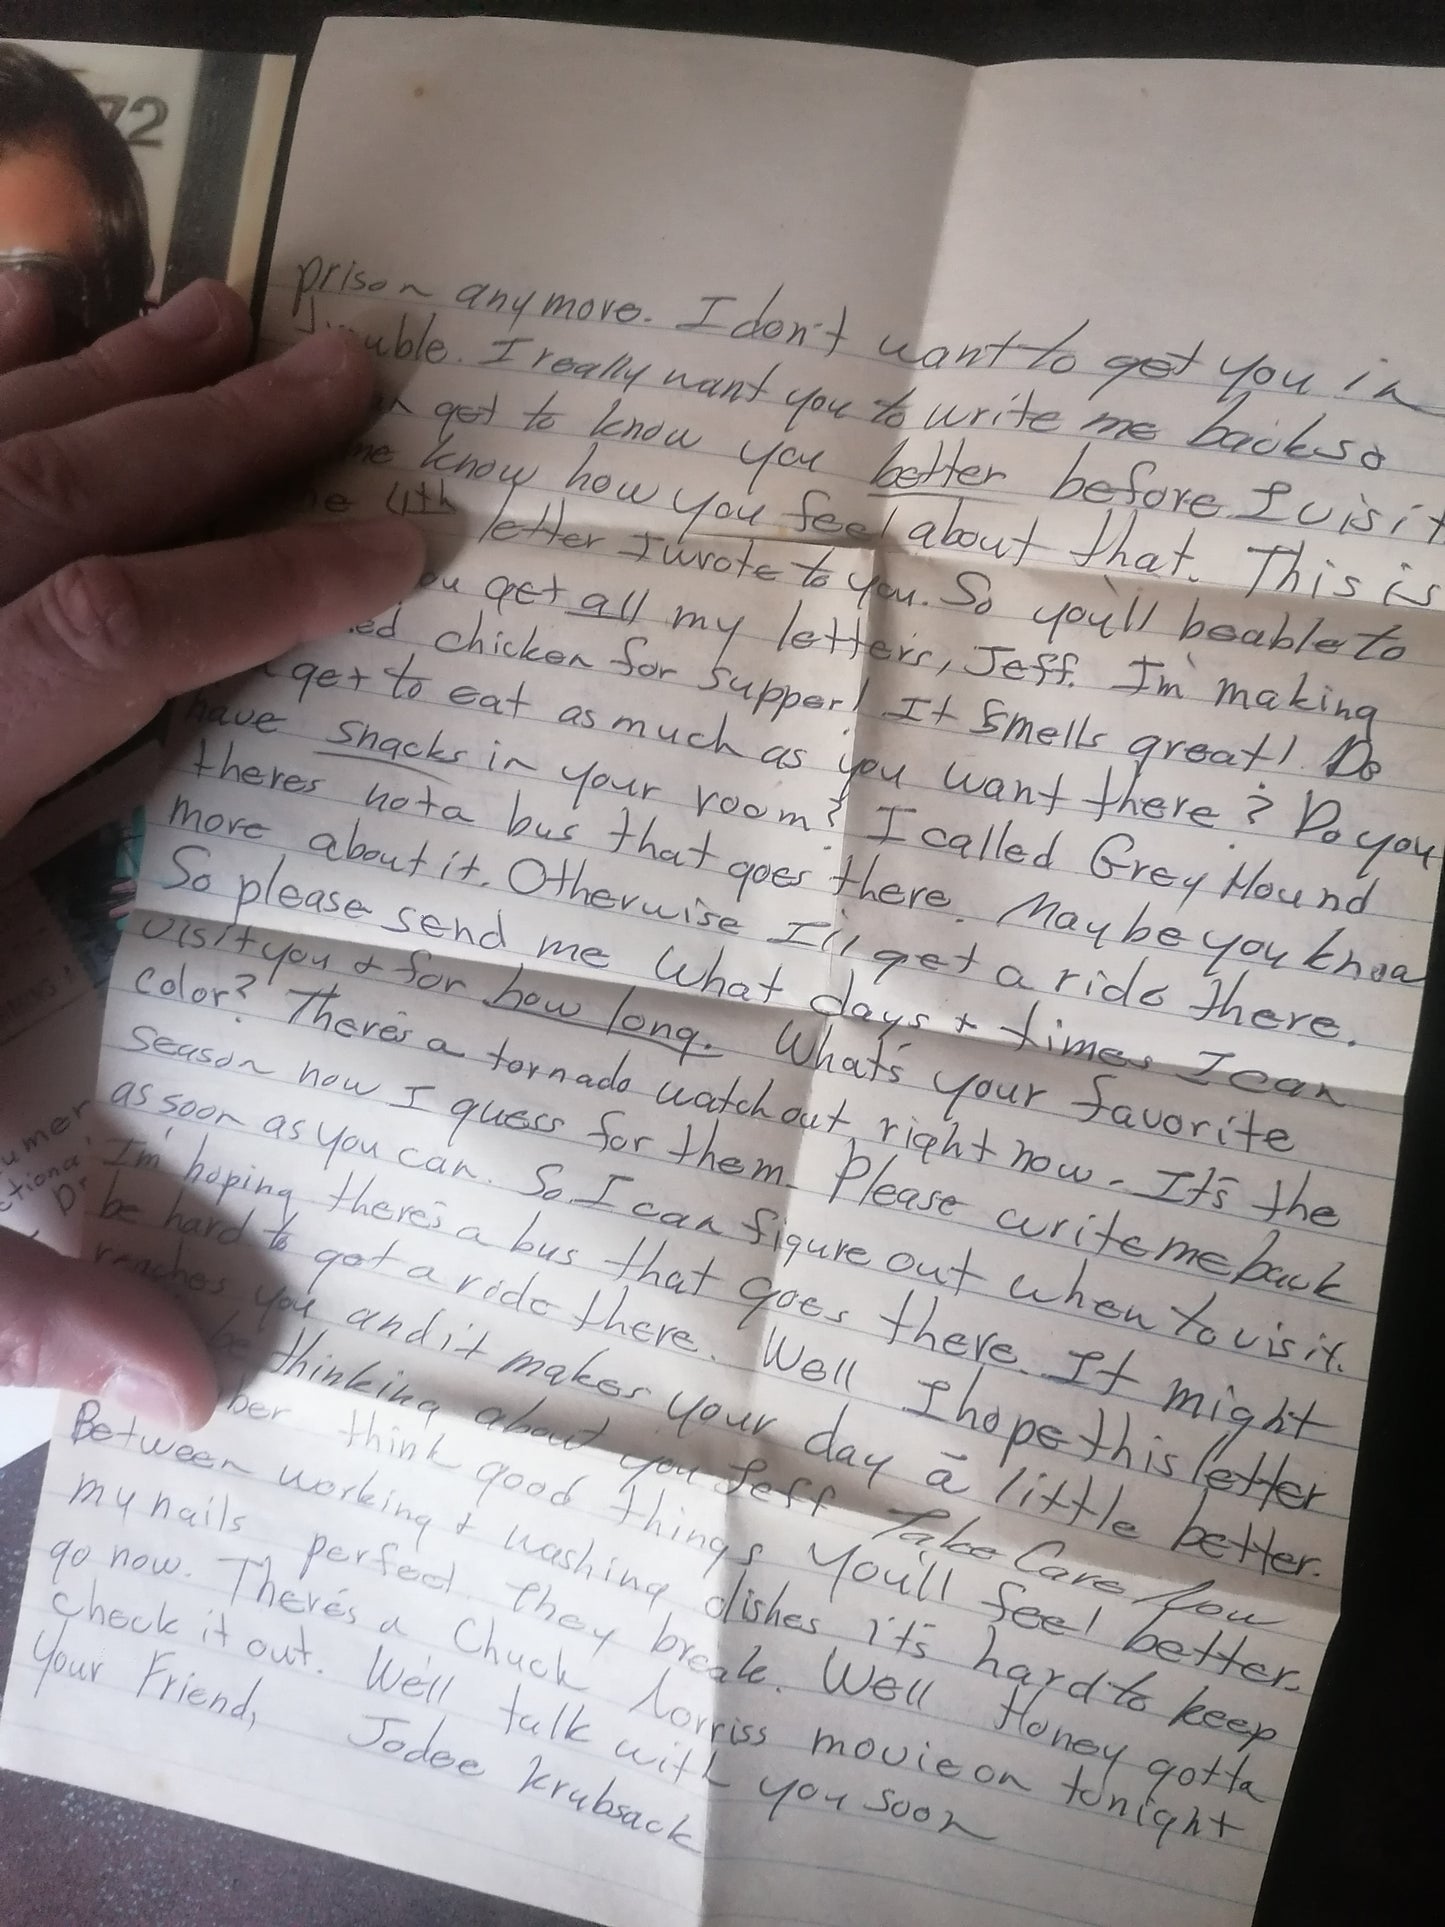 72
prison anymore. I don't want to get you in
uble. I really want you to write me back so
get to know you better before I visit
me know how you feel about that. This is
he 4th letter I wrote to you. So you'll be able to
ou get all my letters, Jeff. I'm making
ed chicken for supper! It smells great! Do
get to eat as much as you want there? Do you
have snacks in your room? I called Grey Hound
theres not a bus that goes there. Maybe you know
more about it. Otherwise I'll get a ride there.
So please send me What days + times I can
visit you + for how long. What's your favorite
color? There's a tornado watch out right now. It's the
season now I guess for them. Please write me back
as soon as you can. So I can figure out when to visit.
I'm hoping there's a bus that goes there. It might
be hard to get a ride there. Well I hope this letter
reaches you and it makes your day a little better.
be thinking about you Jeff Take Care Now
ber think good things You'll feel better.
Between working + washing dishes it's hard to keep
my nails perfect. They break. Well Honey gotta
go now. There's a Chuck Norriss movie on tonight
check it out. We'll talk with you soon
Your Friend, Jodee Krubsack
umer
ctiona